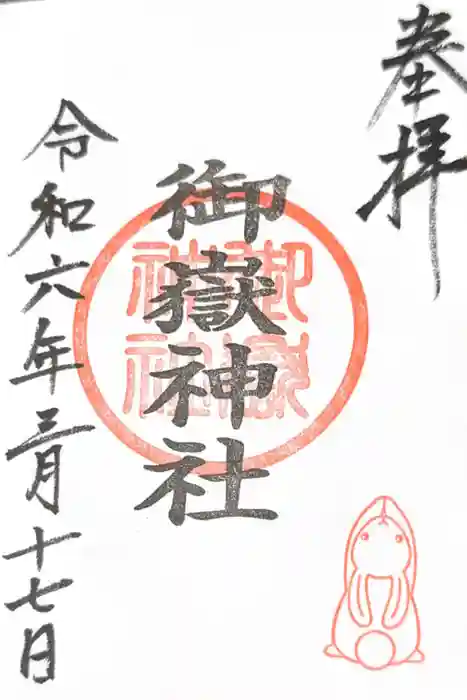 奉拝
御嶽神社
御嶽神社
令和六年三月十七日